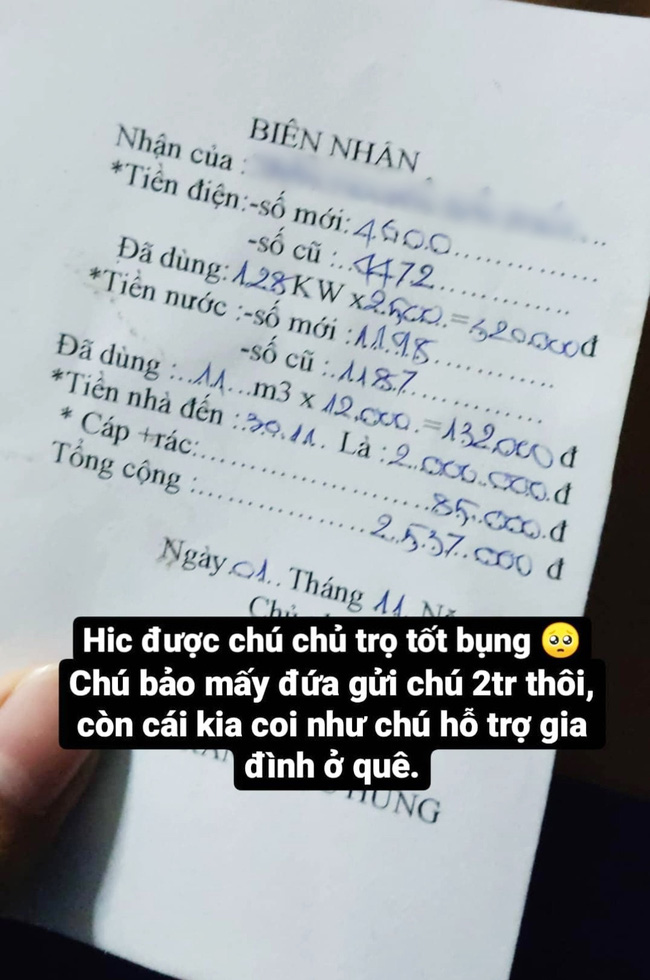 BIÊN NHẬN
Nhận của :
*Tiền điện:-số mới: 4600
-số cũ : 4472
Đã dùng: 128 KW x 2.500. = 320.000đ
*Tiền nước :-số mới : 1198
-số cũ : 1187
Đã dùng : 11 m3 x 12.000. = 132.000 đ
*Tiền nhà đến : 30.11. Là : 2.000.000.đ
* Cáp +rác: 85.000.đ
Tổng cộng : 2.537.000 đ
Ngày 01 Tháng 11
Hic được chú chủ trọ tốt bụng 🥺
Chú bảo mấy đứa gửi chú 2tr thôi,
còn cái kia coi như chú hỗ trợ gia
đình ở quê.